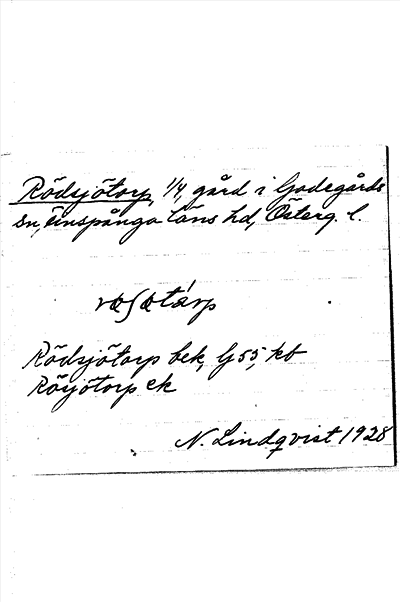 Rödsjötorp, 1/4, gård i Godegårds
sn, Finspånga läns hd, Österg. l.
Rödsjötorp bek, G 55, kb
Röjötorp ek
N. Lindqvist 1928